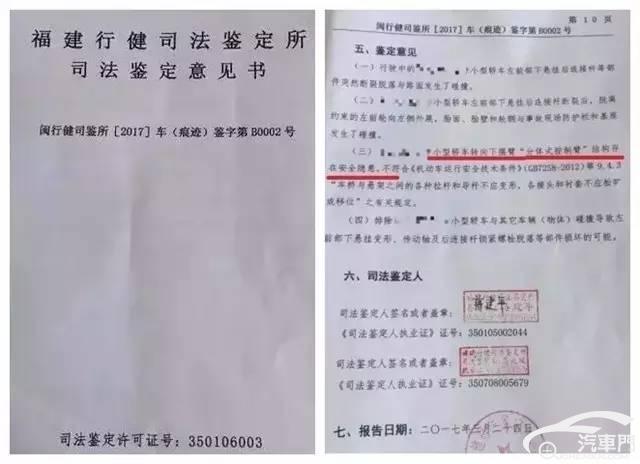 福建行健司法鉴定所
司法鉴定意见书
闽行健司鉴所［2017］车（痕迹）鉴字第B0002号
司法鉴定许可证号：350106003
第10页
闽行健司鉴所［2017］车（痕迹）鉴字第B0002号
五、鉴定意见
（一）行驶中的 小型轿车左前部下悬挂后连接杆等部
件突然断裂脱落与路面发生了碰撞。
（二） 小型轿车左前部下悬挂后连接杆断裂后，脱离
约束的左前轮向左侧外展，胎面、胎壁和轮辋与事故现场防护栏和基座
发生了碰撞。
（三） 小型轿车转向下摆臂“分体式控制臂”结构存
在安全隐患。不符合《机动车运行安全技术条件》（GB7258-2012）第9.4.3
“车桥与悬架之间的各种拉杆和导杆不应变形，各接头和衬套不应松旷
或移位”之有关规定。
（四）排除 小型轿车与其它车辆（物体）碰撞导致左
前部下悬挂变形，传动轴及后连接杆锁紧螺栓脱落等部件损坏的可能。
六、司法鉴定人
司法鉴定人签名或者盖章：
《司法鉴定人执业证》证号：350105002044
司法鉴定人签名或者盖章：
《司法鉴定人执业证》证号：350708005679
七、报告日期：二〇一七年三月二十四日
汽車門